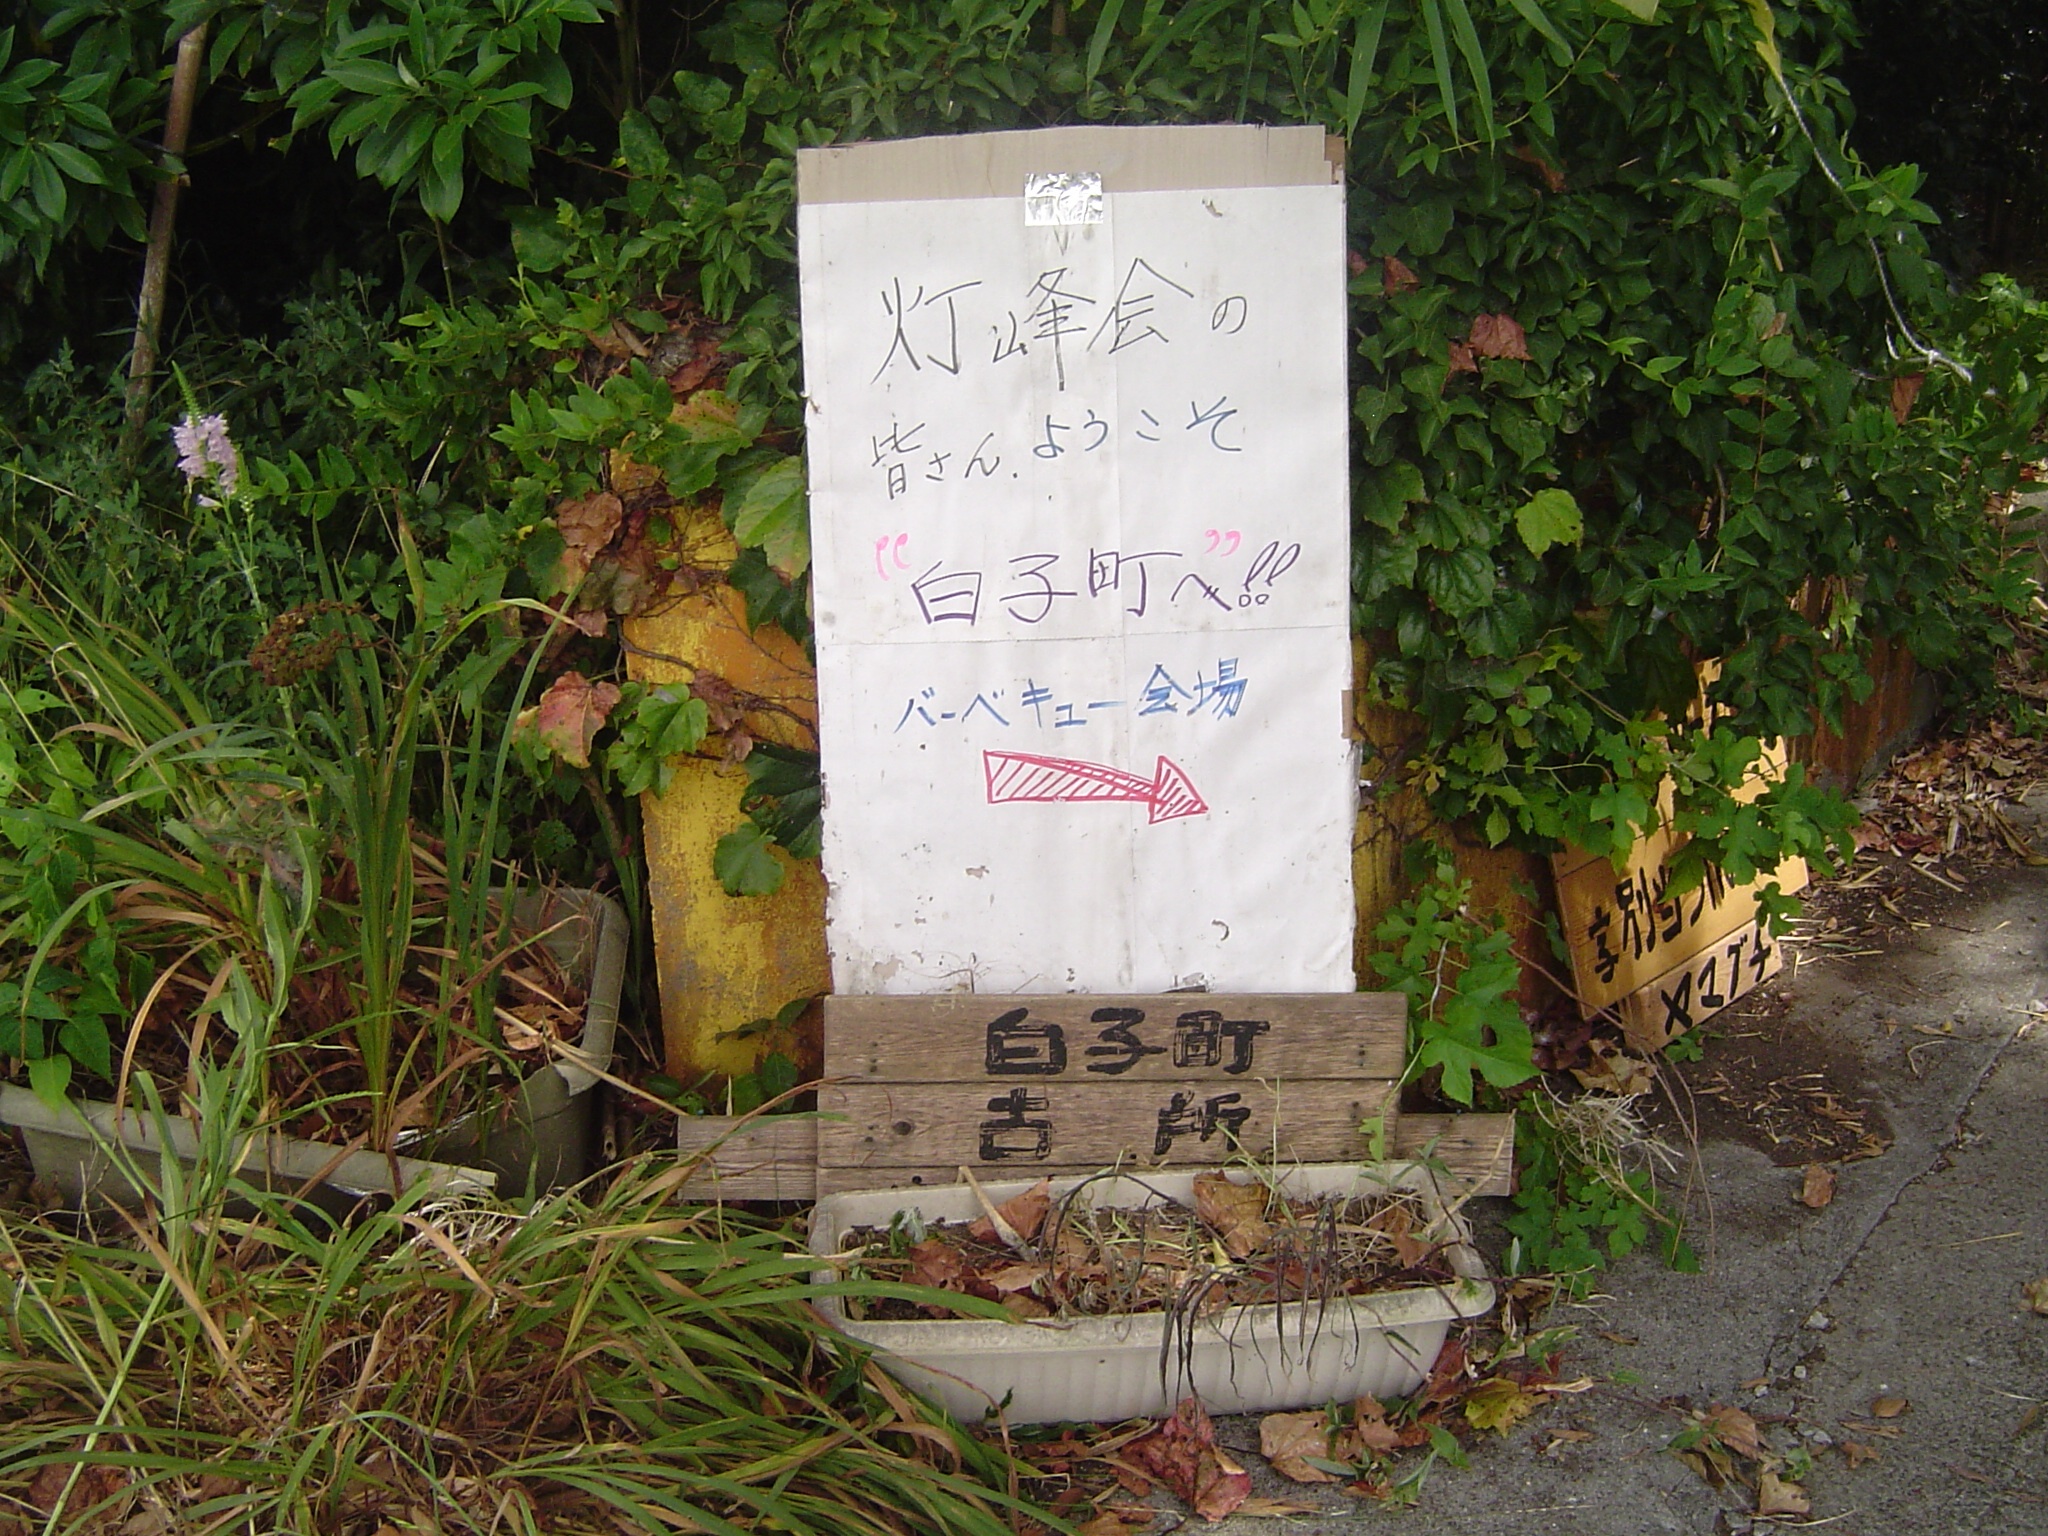 灯峰会の
皆さん.ようこそ
“白子町へ”!!
バーベキュー会場
白子町
古所
ヤマグチ